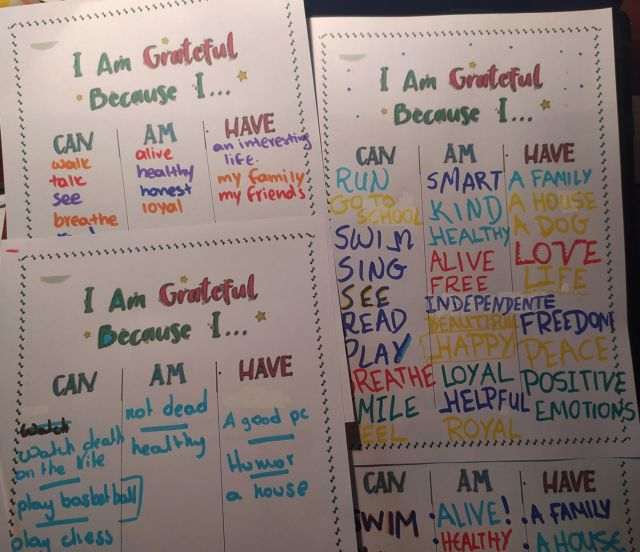 I Am Grateful
Because I...
CAN
walk
talk
see
breathe
AM
alive
healthy
honest
loyal
HAVE
an interesting
life.
my family
my friends
I Am Grateful
Because I...
CAN
RUN
GO TO
SCHOOL
SWIM
SING
SEE
READ
PLAY
REATHE
MILE
EEL
AM
SMART
KIND
HEALTHY
ALIVE
FREE
INDEPENDENTE
BEAUTIFUL
HAPPY
LOYAL
HELPFUL
ROYAL
HAVE
A FAMILY
A HOUSE
A DOG
LOVE
LIFE
FREEDOM
PEACE
POSITIVE
EMOTIONS
I Am Grateful
Because I...
CAN
watch
watch death
on the
play basketball
play chess
AM
not dead
healthy
HAVE
A good pc
Humor
a house
CAN
SWIM
AM
ALIVE!
HEALTHY
HAVE
A FAMILY
A HOUSE